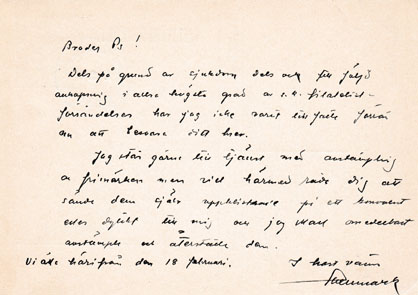 Broder Ps!
Dels på grund av sjukdom dels och till följd
i allra högsta grad av s.k. filatelist-
har jag icke varit tillfälle förrän
nu att besvara ditt brev.
Jag står gärna till tjänst med avstämpling
av frimärken men vill härmed råda dig att
sända dem själv uppklistrade på ett kouvert
eller dylikt till mig och jag skall omedelbart
avstämpla och återställa dem.
Vi åka härifrån den 18 februari.
I hast vänn